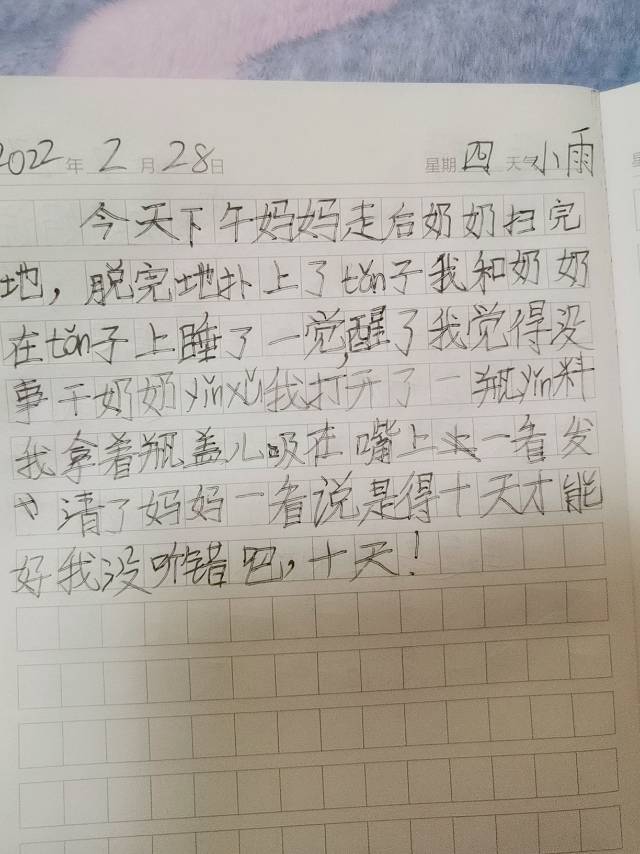 2022年2月28日 星期四 天气小雨
今天下午妈妈走后奶奶扫完
地，脱完地扑上了tǎn子我和奶奶
在tǎn子上睡了一觉，醒了我觉得没
事干奶奶yǐnxǔ我打开了一瓶yǐn料
我拿着瓶盖儿吸在嘴上 一看发
清了妈妈一看说是得十天才能
好我没听错吧，十天！